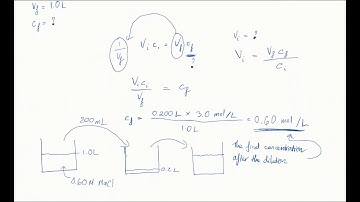 V_f = 1.0L
C_f = ?
1/V_f
V_i C_i = V_f C_f
?
V_i = ?
V_i = V_f C_f / C_i
V_i C_i / V_f = C_f
C_f = 0.200L × 3.0 mol/L / 1.0L = 0.60 mol/L
the final concentration
after the dilution
200mL
1.0L
0.2L
0.60M NaCl